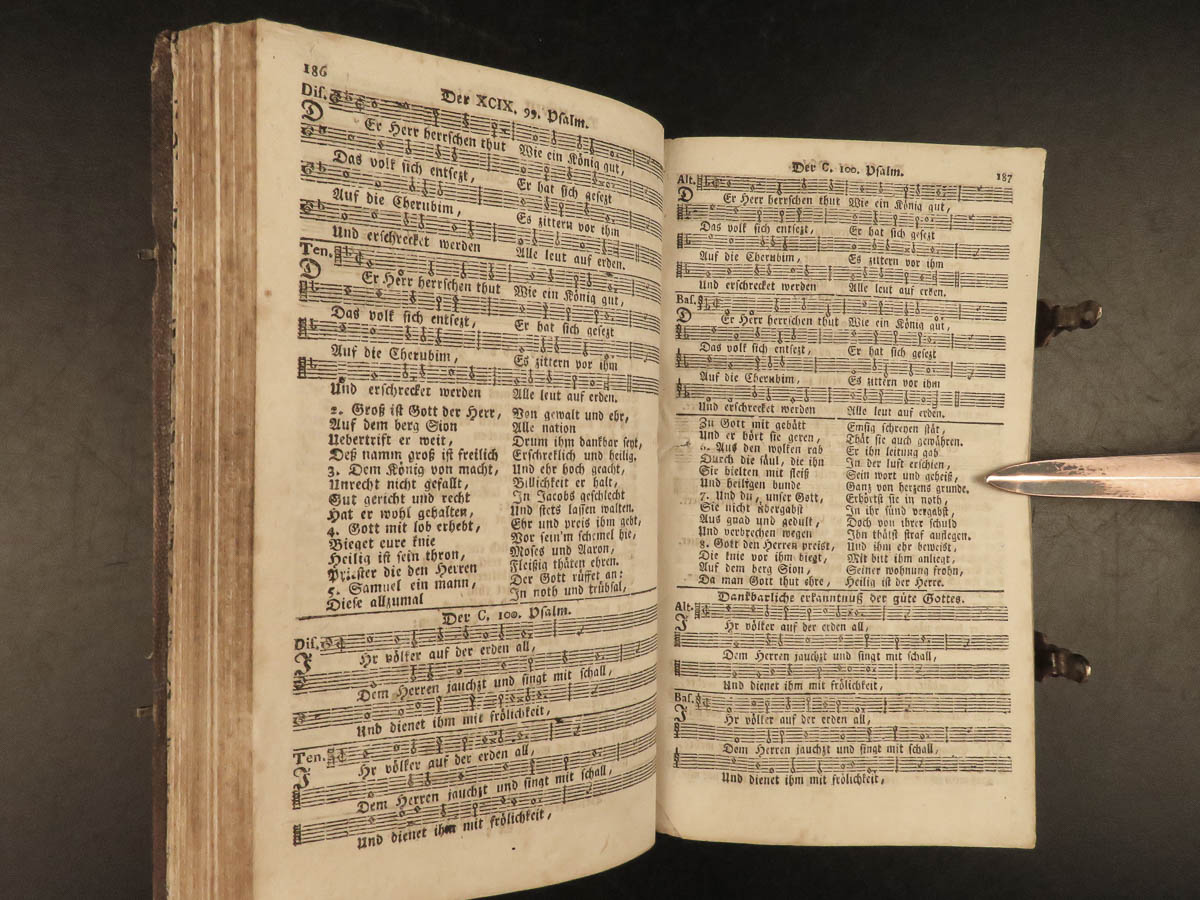 186
Der XCIX. 99. Psalm.
Dis.
DEr Herr herrschen thut Wie ein König gut,
Das volk sich entsezt, Er hat sich gesezt
Auf die Cherubim, Es zittern vor ihm
Und erschrecket werden Alle leut auf erden.
Ten.
DEr Herr herrschen thut Wie ein König gut,
Das volk sich entsezt, Er hat sich gesezt
Auf die Cherubim, Es zittern vor ihm
Und erschrecket werden Alle leut auf erden.
2. Groß ist Gott der Herr, Von gewalt und ehr,
Auf dem berg Sion Alle nation
Uebertrift er weit, Drum ihm dankbar seyt,
Deß namm groß ist freilich Erschreklich und heilig.
3. Dem König von macht, Und ehr hoch geacht,
Unrecht nicht gefallt, Billichkeit er halt,
Gut gericht und recht In Jacobs geschlecht
Hat er wohl gehalten, Und stets lassen walten.
4. Gott mit lob erhebt, Ehr und preis ihm gebt,
Bieget eure knie Vor sein'm schemel hie,
Heilig ist sein thron, Moses und Aaron,
Priester die den Herren Fleißig thäten ehren.
5. Samuel ein mann, Der Gott rüffet an:
Diese allzumal In noth und trübsal,
Der C. 100. Psalm.
Dis.
IHr völker auf der erden all,
Dem Herren jauchzt und singt mit schall,
Und dienet ihm mit frölichkeit,
Ten.
IHr völker auf der erden all,
Dem Herren jauchzt und singt mit schall,
Und dienet ihm mit frölichkeit,
Der C. 100. Psalm.
187
Alt.
DEr Herr herrschen thut Wie ein König gut,
Das volk sich entsezt, Er hat sich gesezt
Auf die Cherubim, Es zittern vor ihm
Und erschrecket werden Alle leut auf erden.
Bas.
DEr Herr herrschen thut Wie ein König gut,
Das volk sich entsezt, Er hat sich gesezt
Auf die Cherubim, Es zittern vor ihm
Und erschrecket werden Alle leut auf erden.
Zu Gott mit gebätt Emsig schreyen stät,
Und er hört sie geren, Thät sie auch gewähren.
6. Aus den wolken rab Er ihn leitung gab
Durch die säul, die ihn In der luft erschien,
Sie hielten mit fleiß Sein wort und geheiß,
Und heilfgen bunde Ganz von herzens grunde.
7. Und du, unser Gott, Erhörtst sie in noth,
Sie nicht übergabst In ihr sünd vergabst,
Aus gnad und gedult, Doch von ihrer schuld
Und verbrechen wegen Ihn thätst straf auflegen.
8. Gott den Herren preist, Und ihm ehr beweist,
Die knie vor ihm biegt, Mit bitt ihm anliegt,
Auf dem berg Sion, Seiner wohnung frohn,
Da man Gott thut ehre, Heilig ist der Herre.
Dankbarliche erkanntnuß der güte Gottes.
Alt.
IHr völker auf der erden all,
Dem Herren jauchzt und singt mit schall,
Und dienet ihm mit frölichkeit,
Bas.
IHr völker auf der erden all,
Dem Herren jauchzt und singt mit schall,
Und dienet ihm mit frölichkeit,